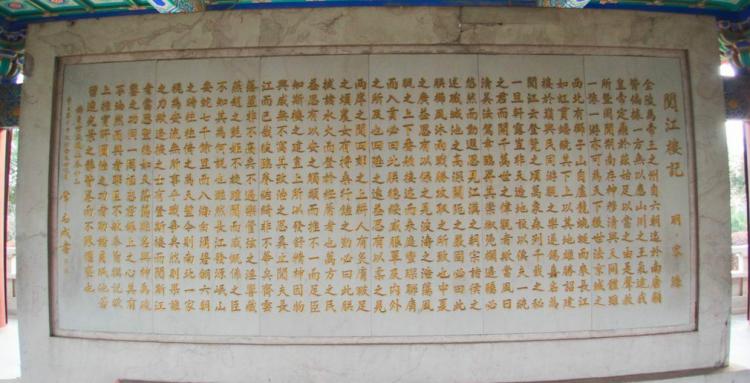 閱江樓記
明 宋濂
金陵為帝王之州自六朝迄於南唐類
皆偏據一方無以應山川之王氣逮我
皇帝定鼎於茲始足以當之由是聲教
所暨罔間朔南存神穆清與天同體雖
一豫一游亦可為天下後世法京城之
西北有獅子山自盧龍蜿蜒而來長江
如虹貫蟠繞其下上以其地雄勝詔建
樓於巔與民同游觀之樂遂錫嘉名為
閱江云登覽之頃萬象森列千載之秘
一旦軒露豈非天造地設以俟大一統
之君而開千萬世之偉觀者歟當風日
清美法駕幸臨升其崇椒憑欄遙矚必
悠然而動遐思見江漢之朝宗諸侯之
述職城池之高深關阨之嚴固必曰此
朕櫛風沐雨戰勝攻取之所致也中夏
之廣益思有以保之見波濤之浩蕩風
帆之上下番舶接迹而來庭蠻琛聯肩
而入貢必曰此朕德綏威服覃及內外
之所及也四陲之遠益思有以柔之見
兩岸之間四郊之上耕人有炙膚皸足
之煩農女有捋桑行饁之勤必曰此朕
拔諸水火而登於衽席者也萬方之民
益思有以安之觸類而推不一而足臣
知斯樓之建皇上所以發舒精神因物
興感無不寓其致治之思奚止閱夫長
江而已哉彼臨春結綺非不華矣齊雲
落星非不高矣不過樂管弦之淫響藏
燕趙之艷姬不旋踵間而感慨係之臣
不知其為何說也雖然長江發源岷山
委蛇七千餘里而入海白湧碧翻六朝
之時往往倚之為天塹今則南北一家
視為安流無所事乎戰爭矣然則果誰
之力歟逢掖之士有登斯樓而閱斯江
者當思聖德如天蕩蕩難名與神禹疏
鑿之功同一罔極忠君報上之心其有
不油然而興者耶臣不敏奉旨撰記欲
上推宵旰圖治之功者勒諸貞珉他若
留連光景之辭皆略而不陳懼褻也
常元成書